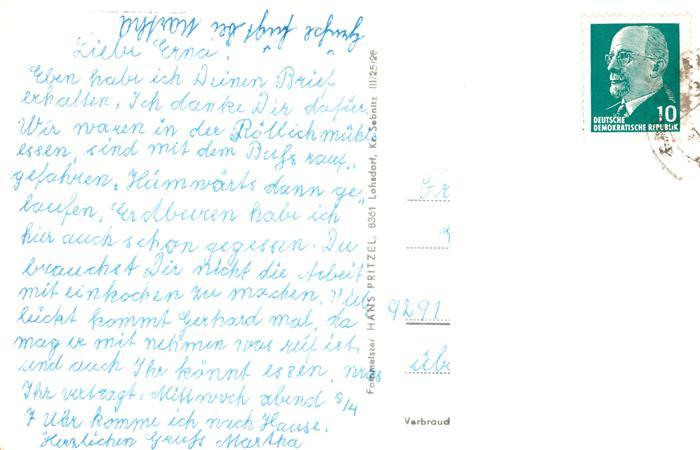 Liebe Erna!
Eben habe ich Deinen Brief
erhalten. Ich danke Dir dafür.
Wir waren in der Röllichmühle
essen, sind mit dem Buss rauf
gefahren. Heimwärts dann ge-
laufen. Erdbeeren habe ich
hier auch schon gegessen. Du
brauchst Dir nicht die Arbeit
mit einkochen zu machen. Viel
leicht kommt Gerhard mal, da
mag er mit nehmen was reif ist
und auch Ihr könnt essen, was
Ihr vertragt. Mittwoch abend 3/4
7 Uhr komme ich nach Hause.
Herzlichen Gruß Martha
Fotomeister HANS PRITZEL, 8361 Lohsdorf, Kr. Sebnitz III/25/28
10
DEUTSCHE
DEMOKRATISCHE REPUBLIK
Fr
9291
üb
Verbrauc